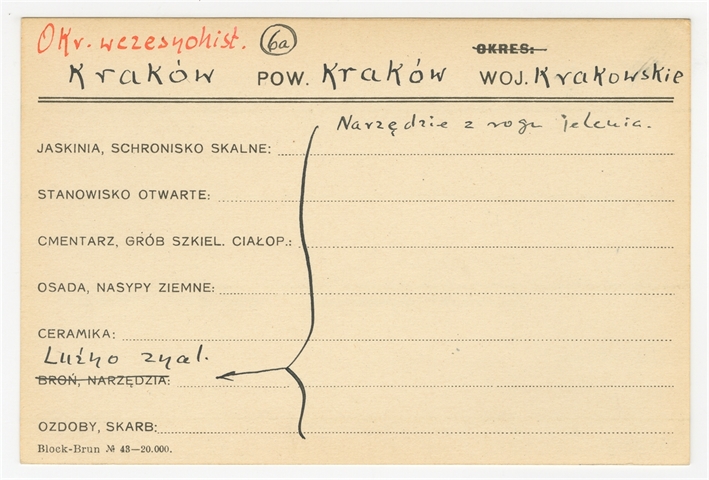 Okr. wczesnohist. 6a OKRES:
Kraków POW. Kraków WOJ. Krakowskie
Narzędzie z rogu jelenia.
JASKINIA, SCHRONISKO SKALNE:
STANOWISKO OTWARTE:
CMENTARZ, GRÓB SZKIEL. CIAŁOP.:
OSADA, NASYPY ZIEMNE:
CERAMIKA:
Luźno znal.
BROŃ, NARZĘDZIA:
OZDOBY, SKARB:
Block-Brun № 43—20.000.